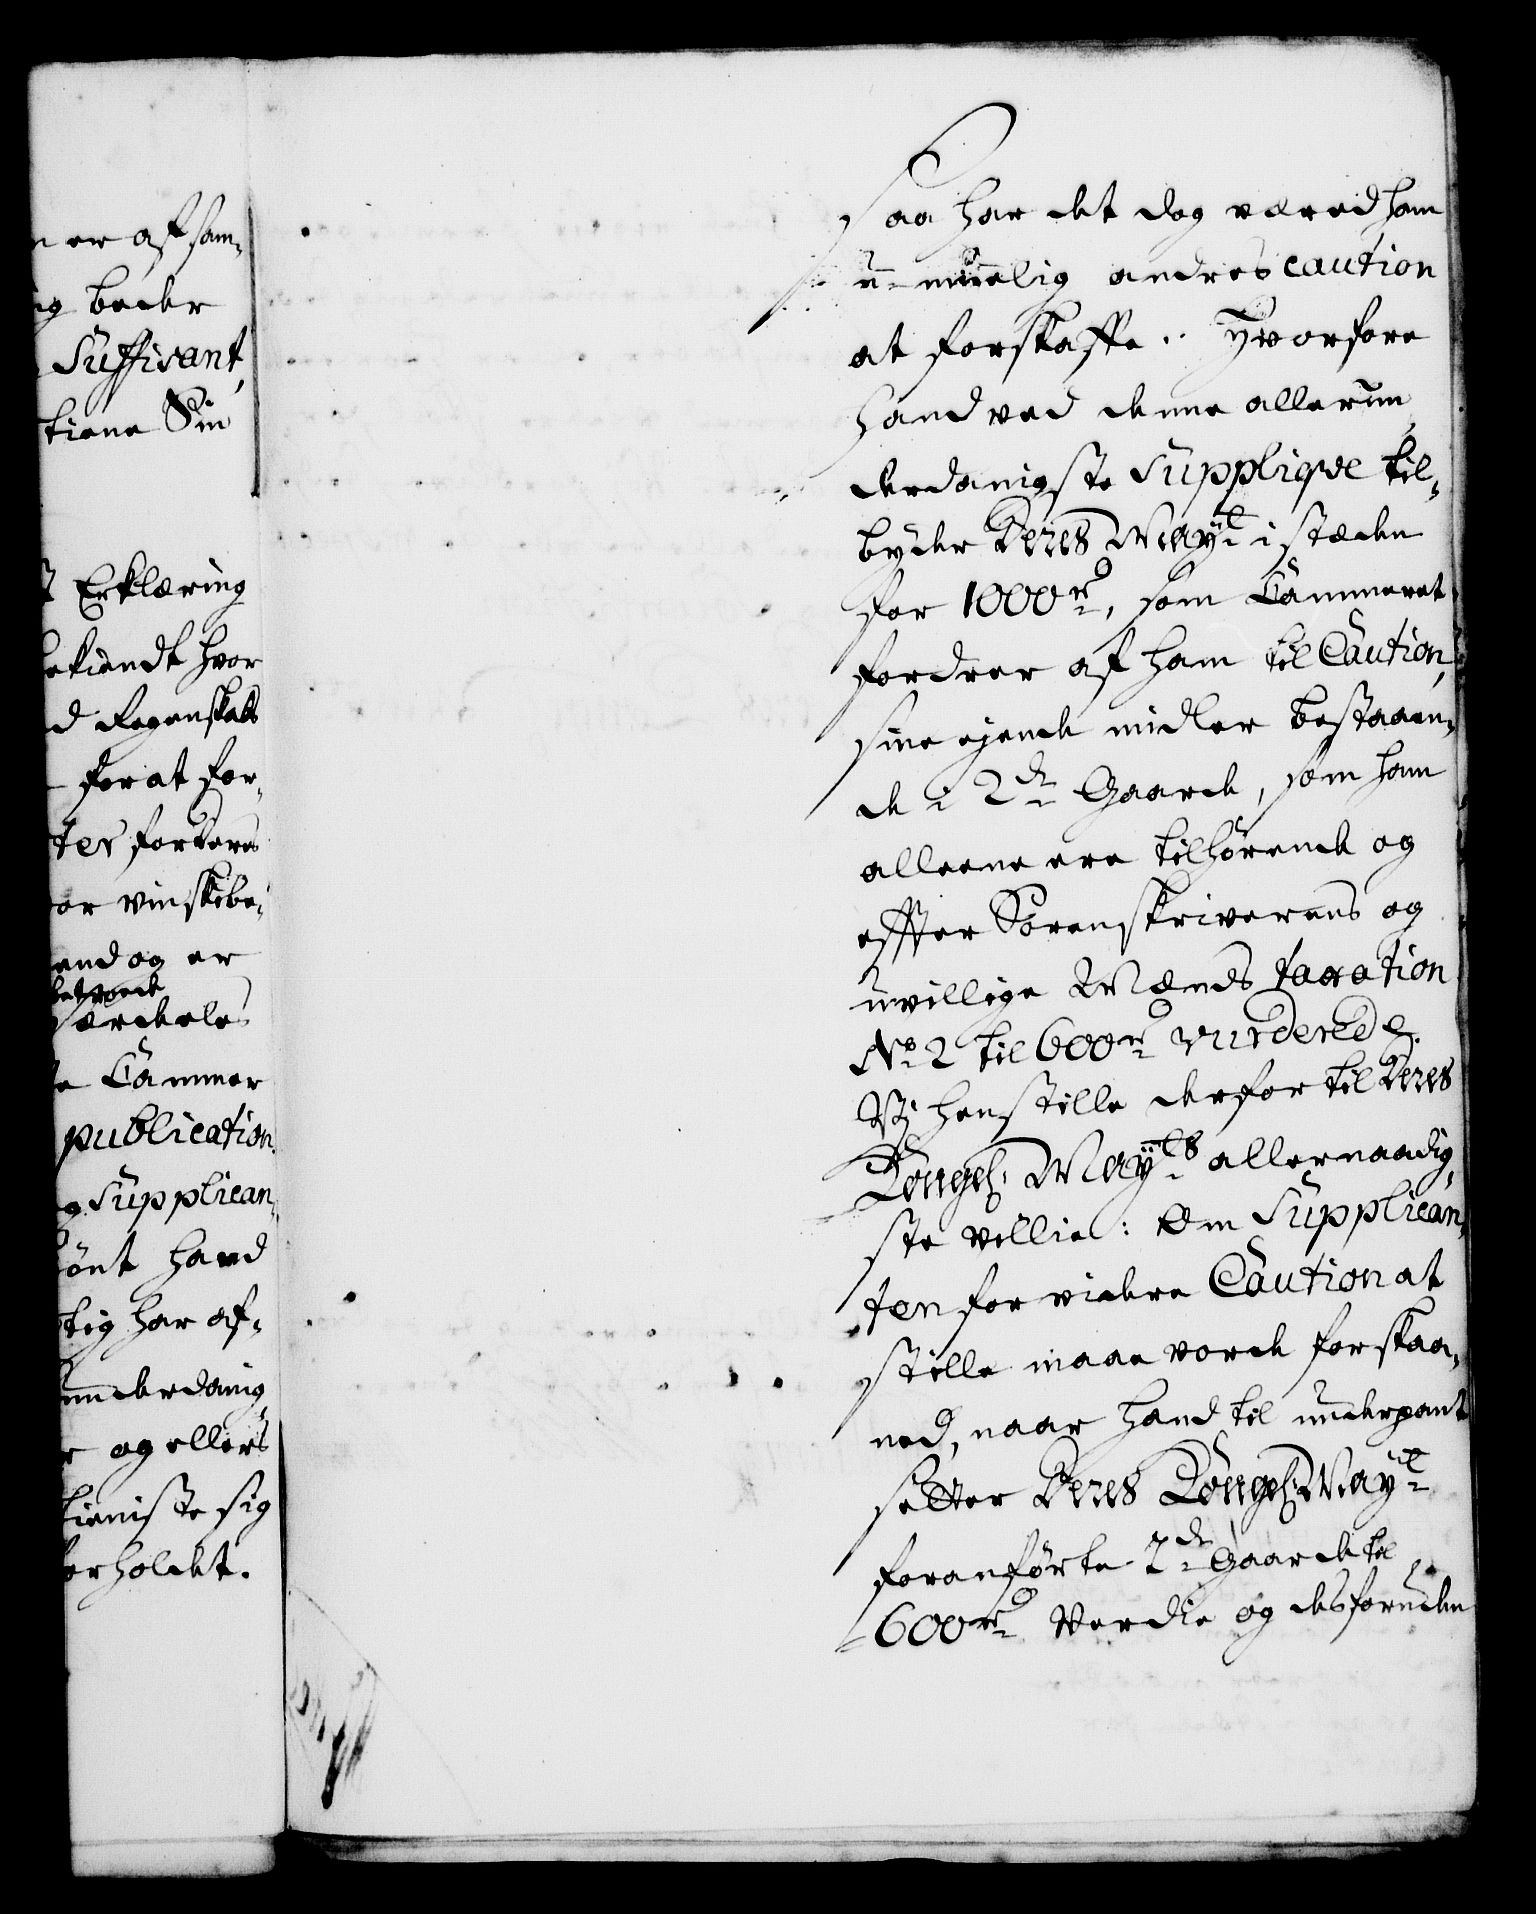 er af sam-
beder
Suffisant,
tiene Sin
Erklæring
bekiendt hvor
d Regenskab
for at for-
ter forteres
or vinskibe-
end og er
særdeles
Cammer
publication
Supplican-
hand
tig har af-
underdanig
r og ellers
tieniste sig
forholdet.
Saa har det dog væred ham
u-muelig andres caution
at forskaffe. Hvorfore
hand ved denne allerun-
derdanigste Supplique til-
byder Deres Mayt i stæden
for 1000 rd, som Cammeret
fordrer af ham til Caution,
sine ejende midler bestaaen-
de i 2de Gaarde, som ham
alleene ere tilhørende og
effter Sorenskriverens og
uvillige Mænds taxation
No 2 til 600 rd vurderede.
Vj henstille derfor til Deres
Kongel. Mayts allernaadig-
ste villie: Om Supplican-
ten for videre Caution at
stille maae vorde forskaa-
ned, naar hand til underpant
setter Deres Kongel. Mayt
foranførte 2de Gaarde til
600 rd Verdie og desforuden